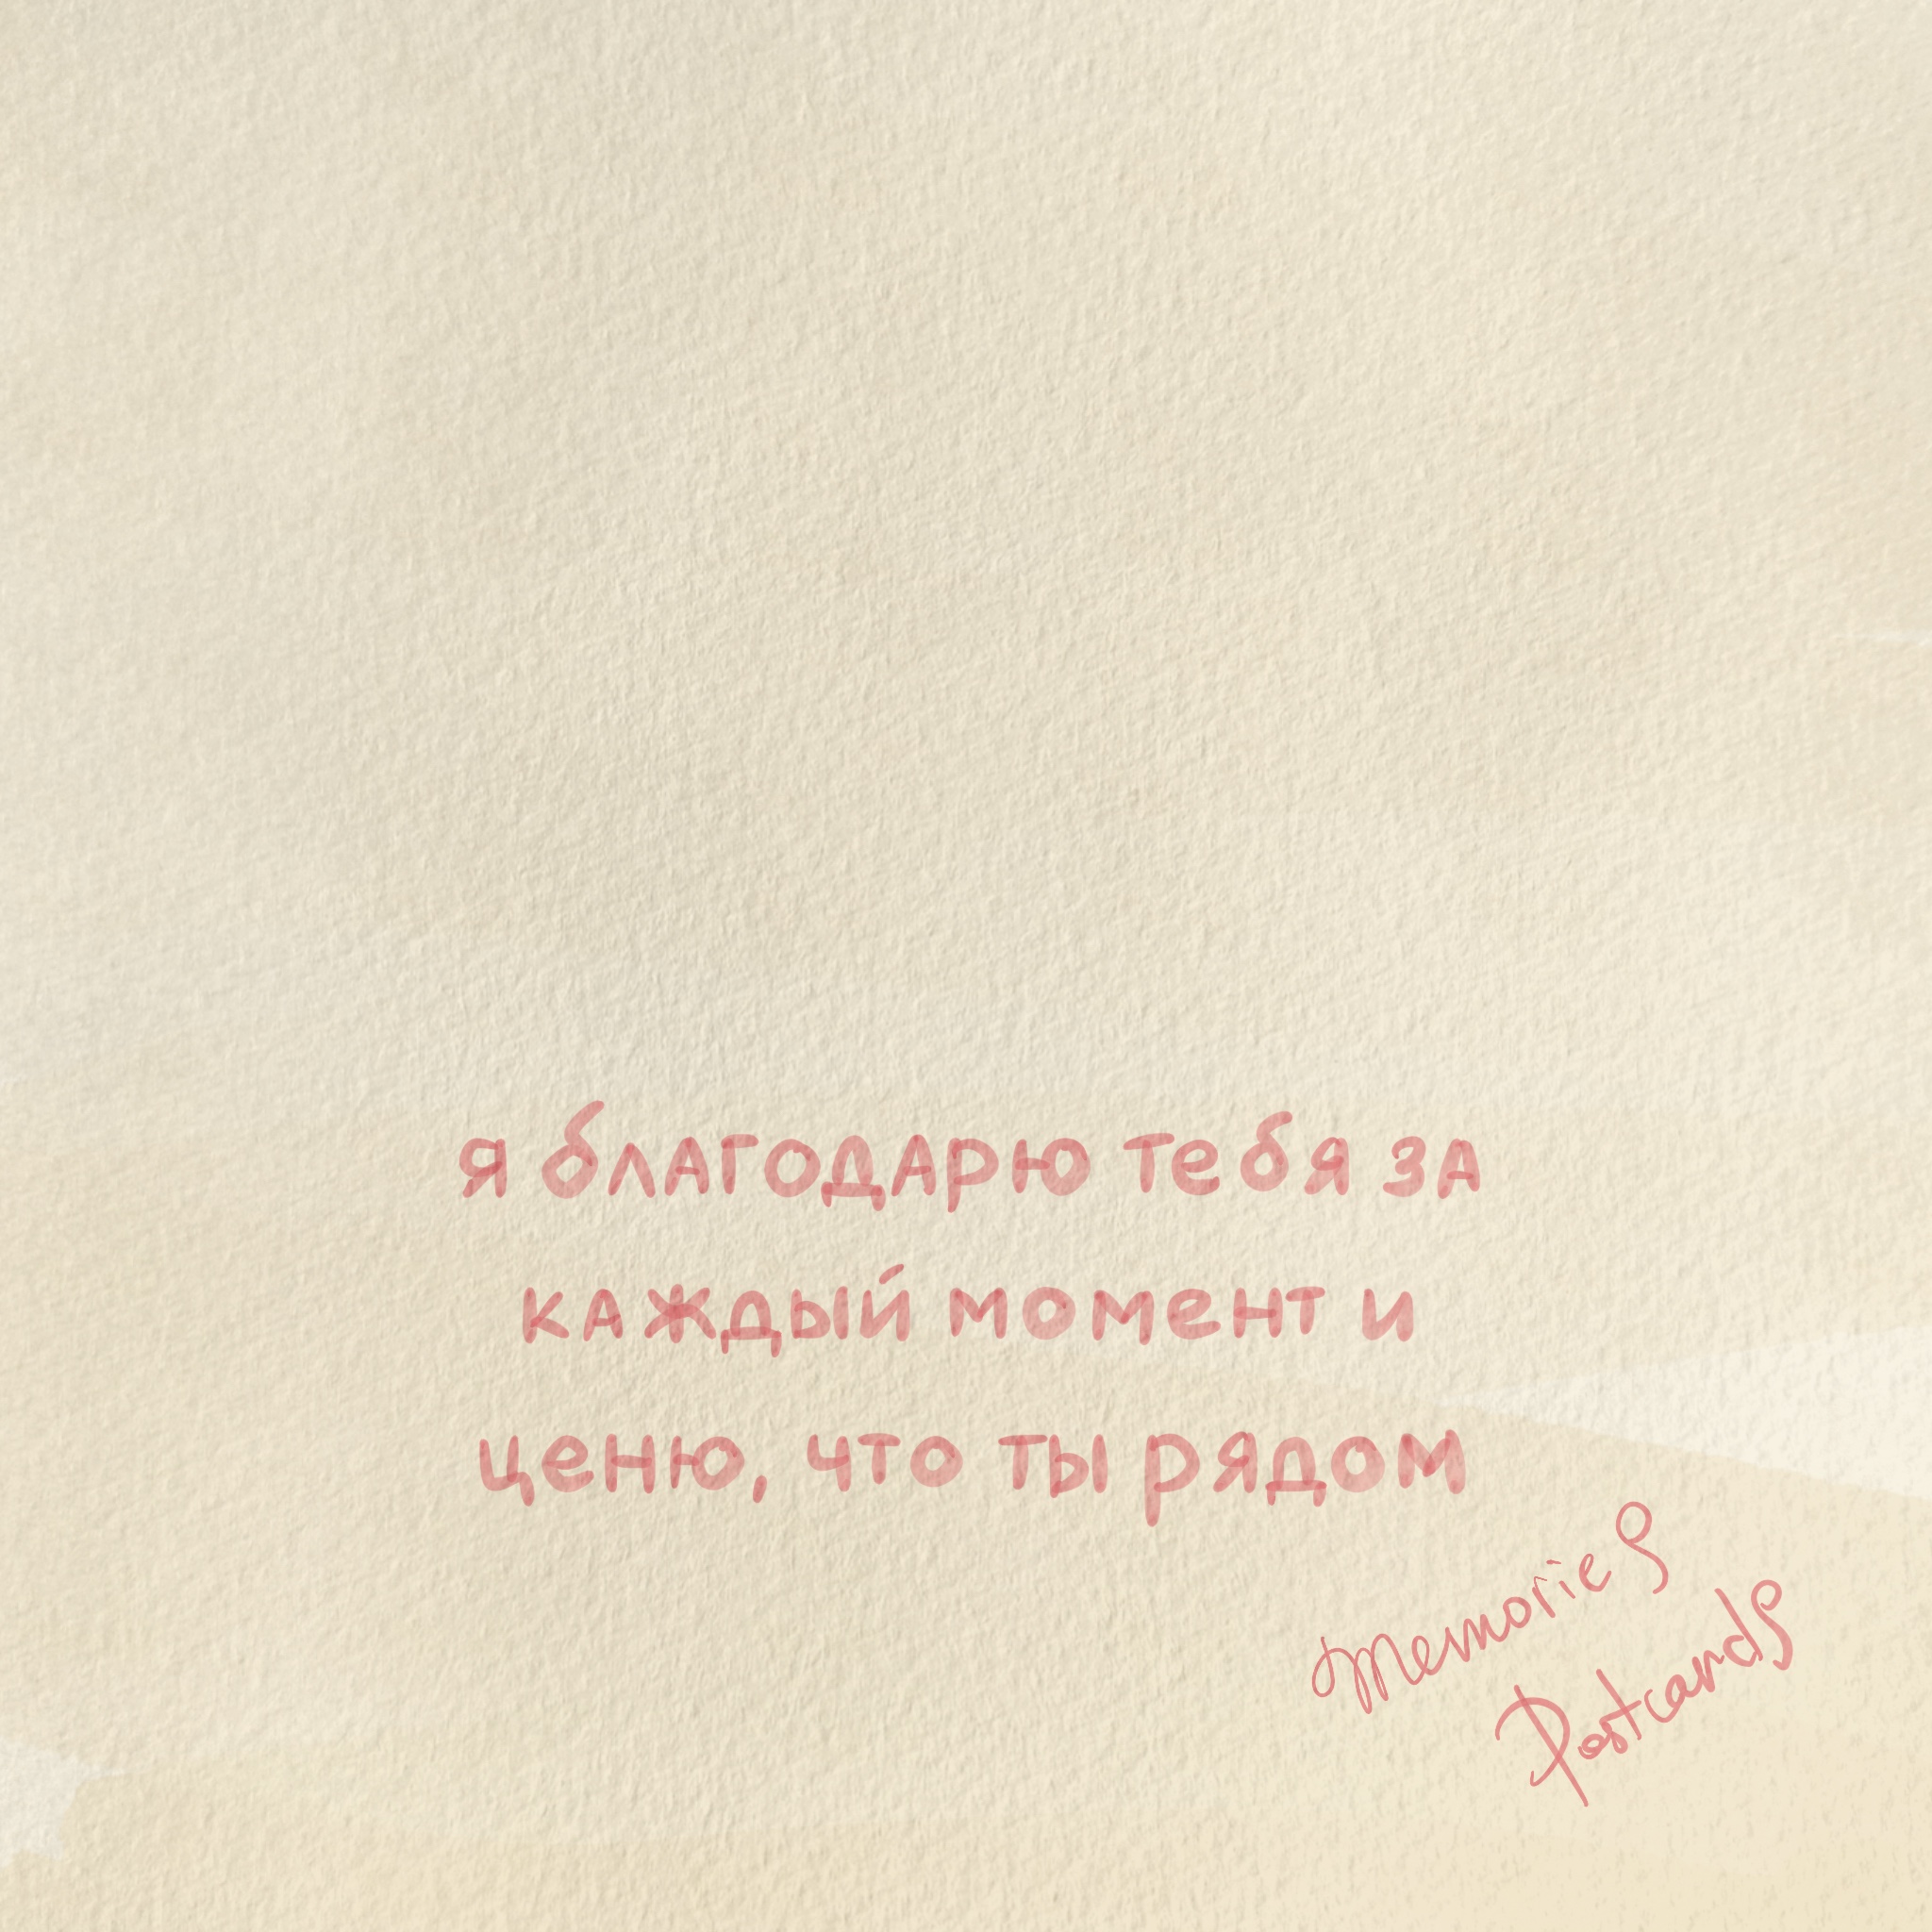 я благодарю тебя за
каждый момент и
ценю, что ты рядом
Memories
Postcards